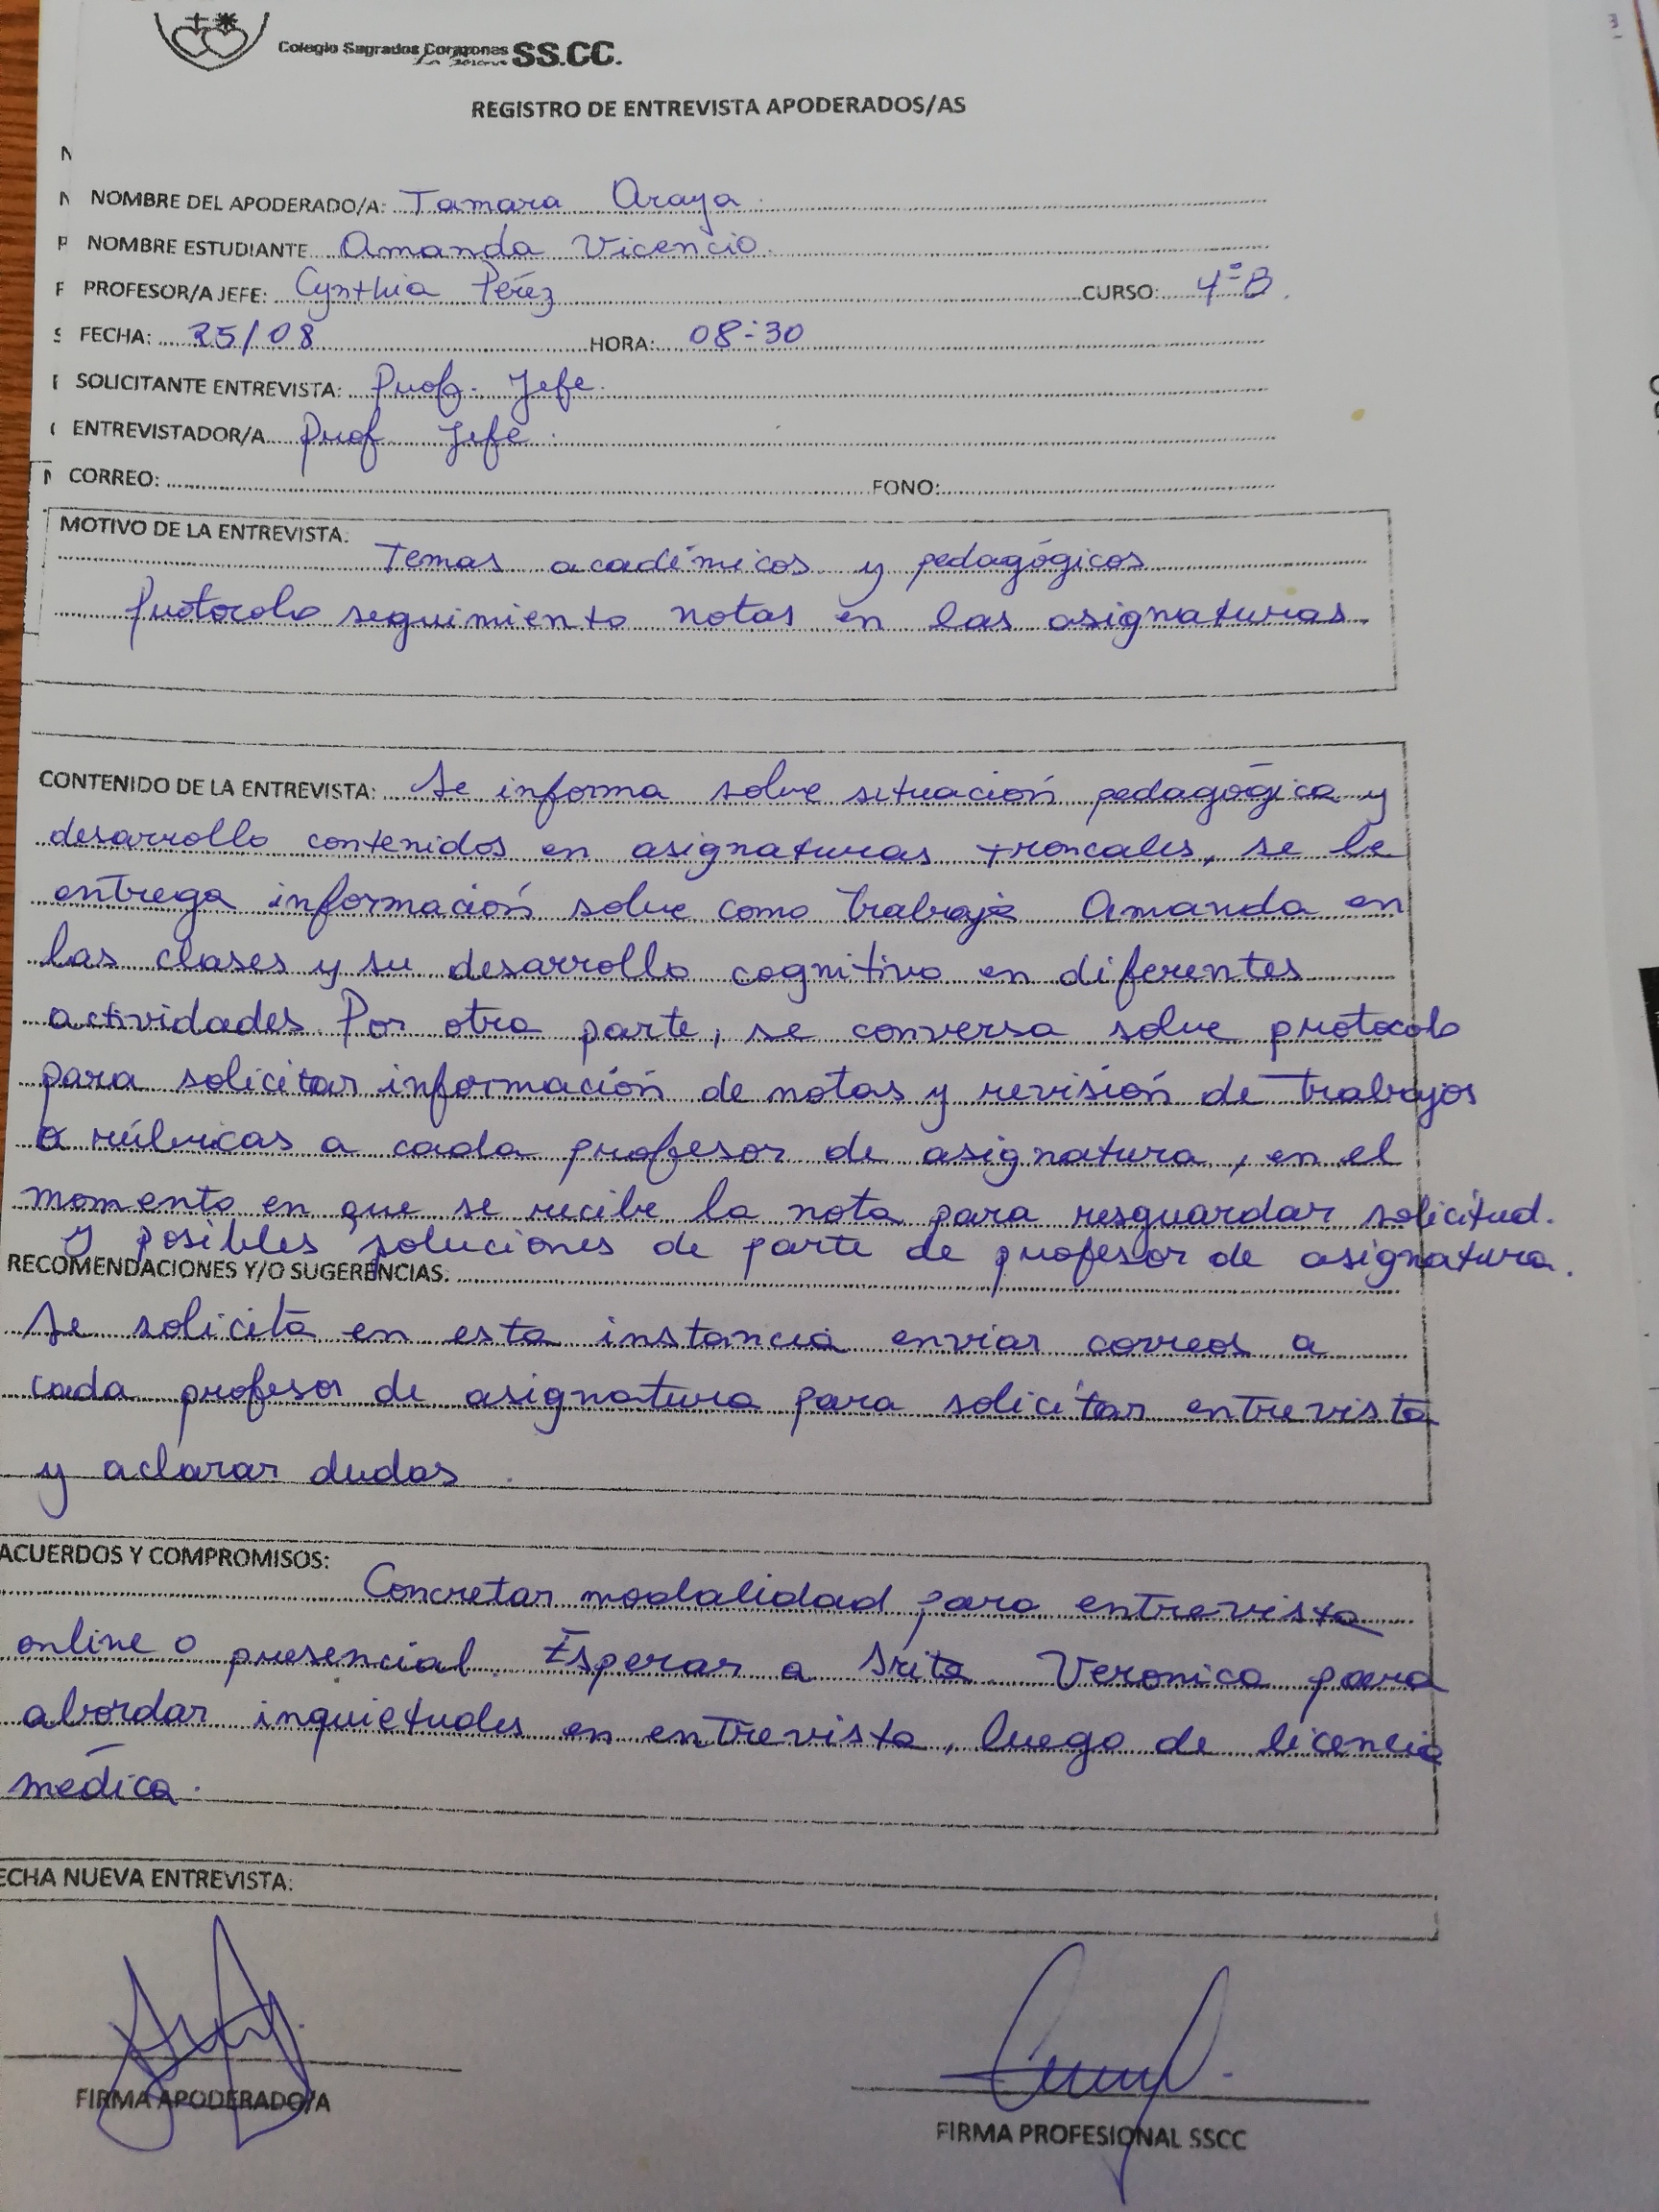 Colegio Sagrados Corazones SS.CC.
REGISTRO DE ENTREVISTA APODERADOS/AS
NOMBRE DEL APODERADO/A: Tamara Araya
NOMBRE ESTUDIANTE Amanda Vicencio.
PROFESOR/A JEFE: Cynthia Pérez CURSO: 4°B.
FECHA: 25/08 HORA: 08:30
SOLICITANTE ENTREVISTA: Prof. Jefe.
ENTREVISTADOR/A Prof Jefe.
CORREO: FONO:
MOTIVO DE LA ENTREVISTA:
Temas académicos y pedagógicos
Protocolo seguimiento notas en las asignaturas.
CONTENIDO DE LA ENTREVISTA: Se informa sobre situación pedagógica y
desarrollo contenidos en asignaturas troncales, se le
entrega información sobre como trabaja Amanda en
las clases y su desarrollo cognitivo en diferentes
actividades. Por otra parte, se conversa sobre protocolo
para solicitar información de notas y revisión de trabajos
o rúbricas a cada profesor de asignatura, en el
momento en que se recibe la nota para resguardar solicitud.
y posibles soluciones de parte de profesor de asignatura.
RECOMENDACIONES Y/O SUGERENCIAS.
Se solicita en esta instancia enviar correos a
cada profesor de asignatura para solicitar entrevista
y aclarar dudas.
ACUERDOS Y COMPROMISOS:
Concretar modalidad para entrevista
online o presencial. Esperar a Srita Veronica para
abordar inquietudes en entrevista, luego de licencia
médica.
ECHA NUEVA ENTREVISTA:
FIRMA APODERADO/A
FIRMA PROFESIONAL SSCC